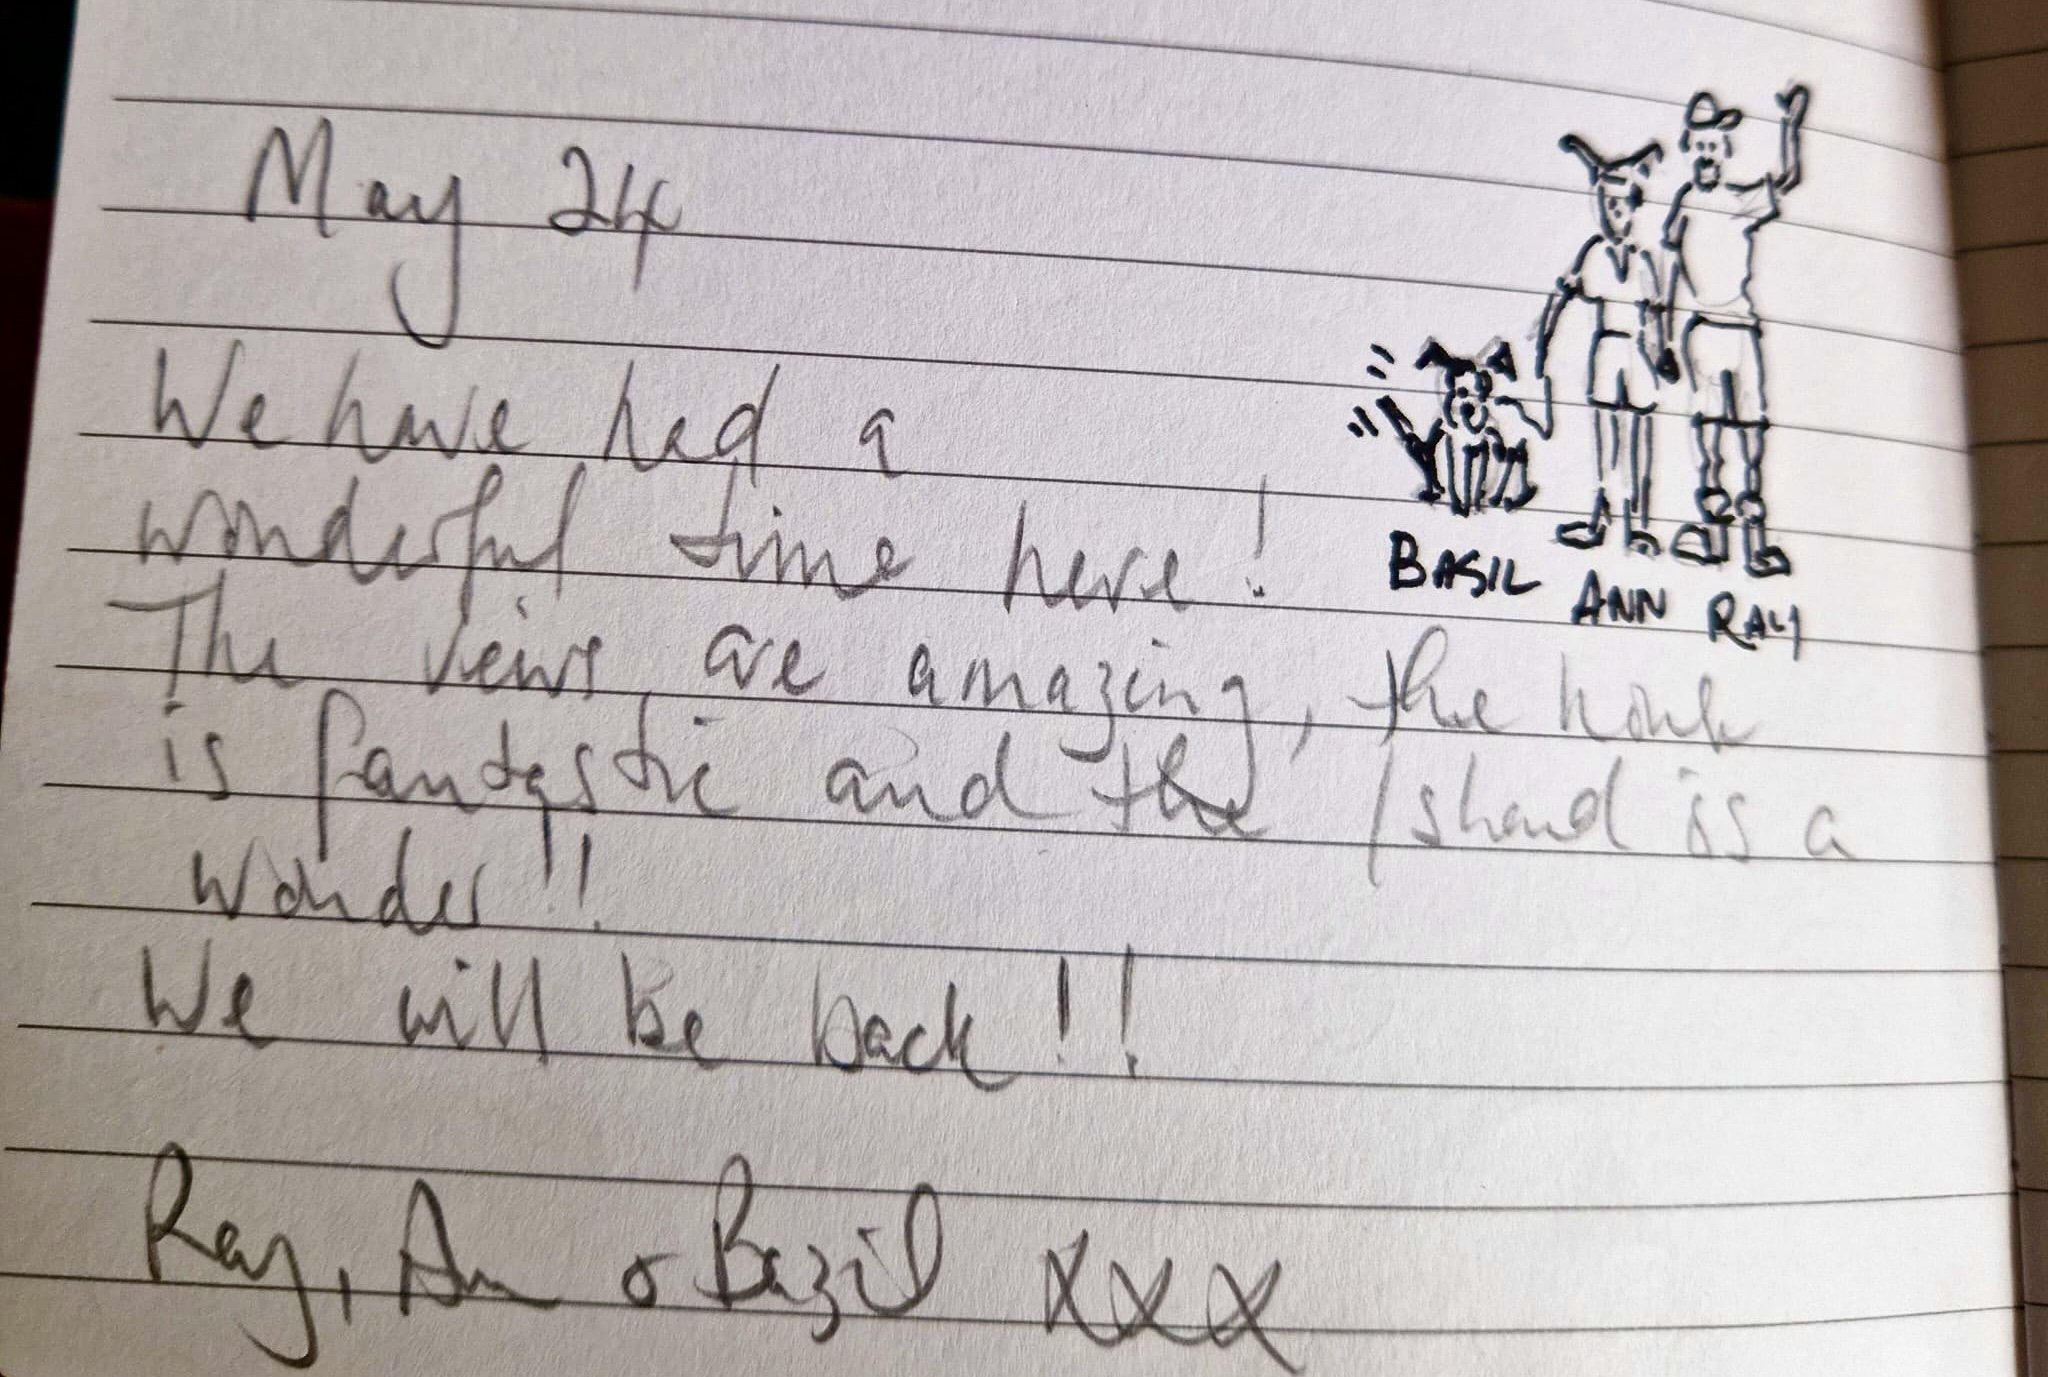 May 24
We have had a
wonderful time here!
BASIL ANN RAY
The views are amazing, the house
is fantastic and the Island is a
wonder!!
We will be back!!
Ray, Ann & Bazil xxx